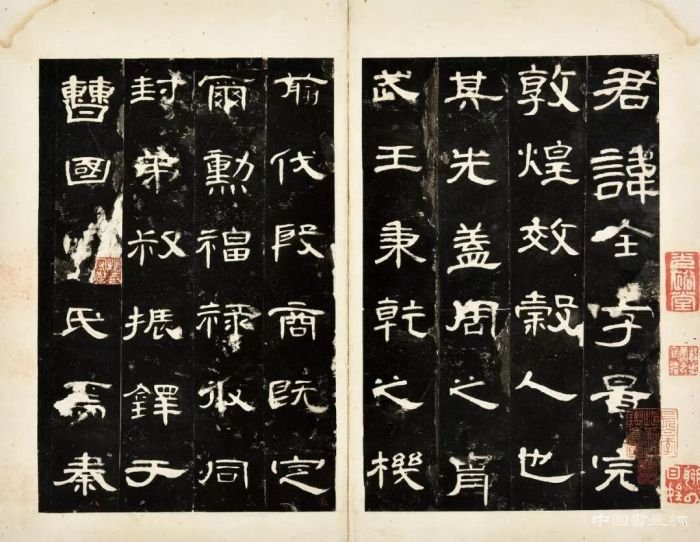 君諱全字景完
敦煌效穀人也
其先蓋周之胄
武王秉乾之機
翦伐殷商既定
爾勳福祿攸同
封弟叔振鐸于
曹國氏焉秦
中国書画網